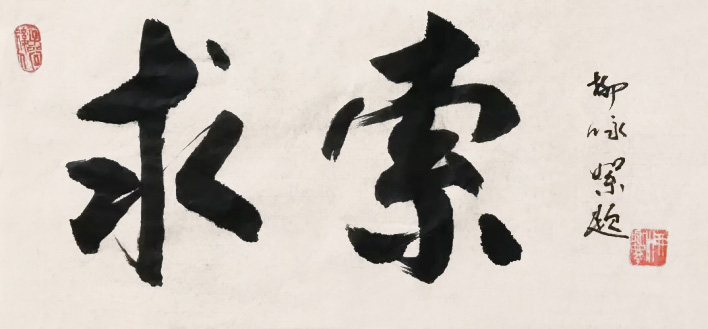 求索
柳咏絮题